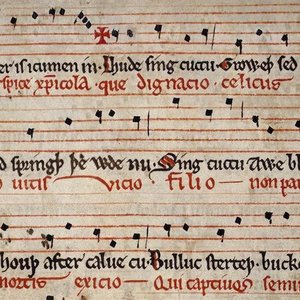 er is icumen in. Lhude sing cuccu. Groweþ sed
spice xp̄icola. que dignacio celicus
d springþ þe wde nu. Sing cuccu Awe bl
o uitis vicio filio non pa
houþ after calue cu. Bulluc sterteþ. bucke
mortis exicio Qui captiuos semi